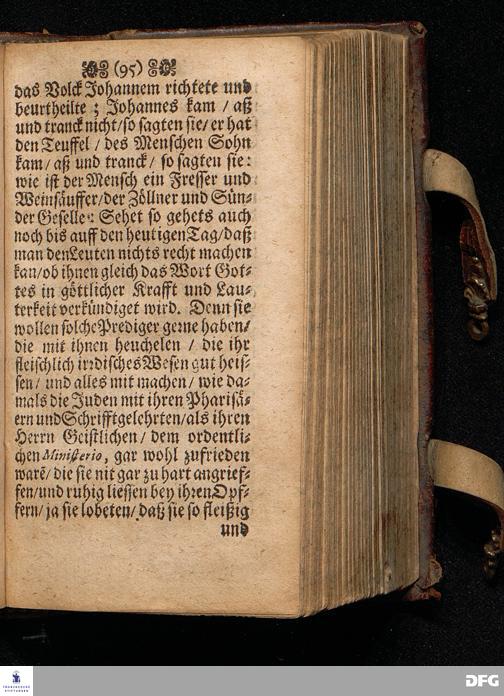 (95)
das Volck Johannem richtete und
beurtheilte; Johannes kam / aß
und tranck nicht/so sagten sie/ er hat
den Teuffel / des Menschen Sohn
kam/ aß und tranck/ so sagten sie:
wie ist der Mensch ein Fresser und
Weinsäuffer/der Zöllner und Sün-
der Geselle: Sehet so gehets auch
noch bis auff den heutigen Tag/daß
man den Leuten nichts recht machen
kan/ob ihnen gleich das Wort Got-
tes in göttlicher Krafft und Lau-
terkeit verkündiget wird. Denn sie
wollen solche Prediger gerne haben/
die mit ihnen heuchelen / die ihr
fleischlich irrdisches Wesen gut heis-
sen/ und alles mit machen/ wie da-
mals die Juden mit ihren Pharisä-
ern und Schrifftgelehrten/als ihren
Herrn Geistlichen/ dem ordentli-
chen Ministerio, gar wohl zufrieden
warẽ/ die sie nit gar zu hart angrief-
fen/und ruhig liessen bey ihren Opf-
fern/ ja sie lobeten/ daß sie so fleißig
und
FRANCKESCHE
STIFTUNGEN
DFG